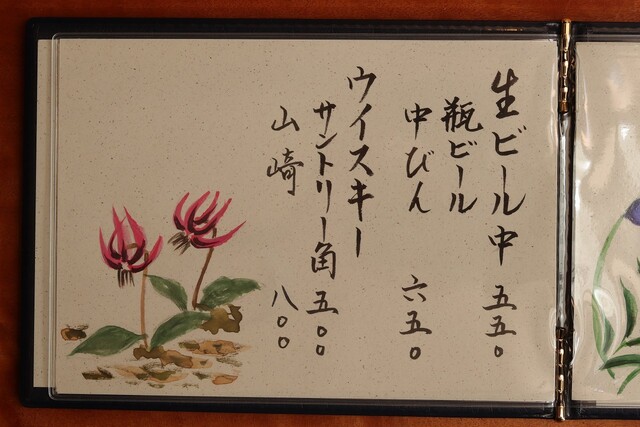 生ビール中 五五〇
瓶ビール
中びん 六五〇
ウイスキー
サントリー角 五〇〇
山崎 八〇〇